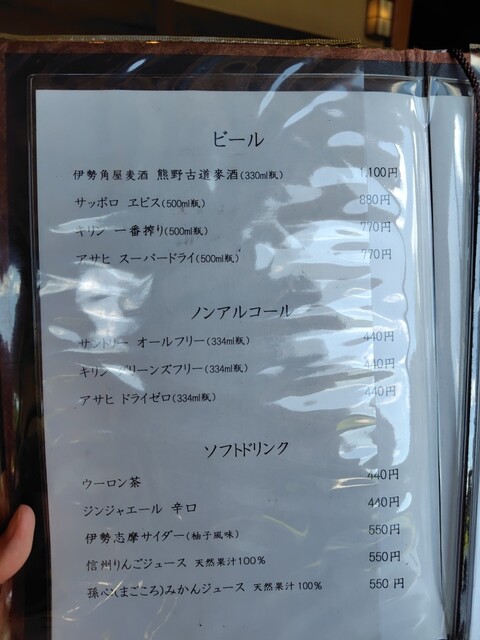 ビール
伊勢角屋麦酒 熊野古道麥酒(330ml瓶) 1,100円
サッポロ ヱビス(500ml瓶) 880円
キリン 一番搾り(500ml瓶) 770円
アサヒ スーパードライ(500ml瓶) 770円
ノンアルコール
サントリー オールフリー(334ml瓶) 440円
キリン グリーンズフリー(334ml瓶) 440円
アサヒ ドライゼロ(334ml瓶) 440円
ソフトドリンク
ウーロン茶 440円
ジンジャエール 辛口 440円
伊勢志摩サイダー(柚子風味) 550円
信州りんごジュース 天然果汁100% 550円
孫べ(まごころ)みかんジュース 天然果汁100% 550円